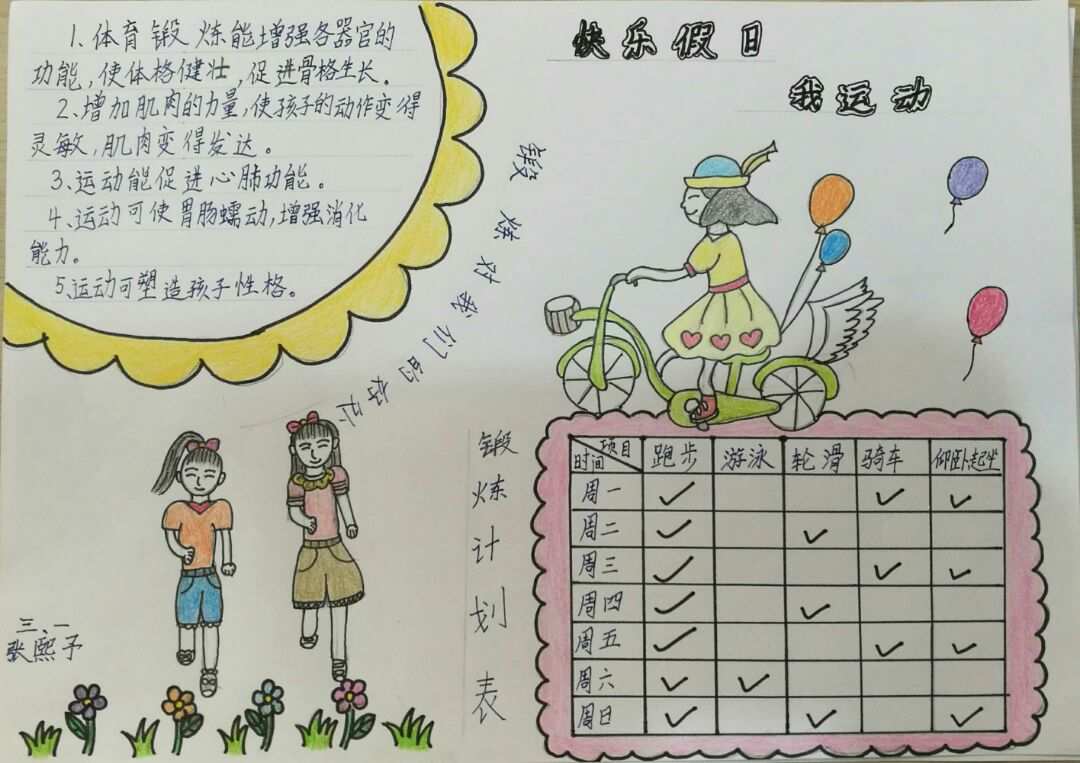 快乐假日
我运动
1、体育锻炼能增强各器官的
功能，使体格健壮，促进骨格生长。
2、增加肌肉的力量，使孩子的动作变得
灵敏，肌肉变得发达。
3、运动能促进心肺功能。
4、运动可使胃肠蠕动，增强消化
能力。
5、运动可塑造孩子性格。
锻炼对我们的好处
锻炼计划表
项目 时间 跑步 游泳 轮滑 骑车 仰卧起坐
周一 ✓ ✓ ✓
周二 ✓ ✓
周三 ✓ ✓ ✓
周四 ✓ ✓
周五 ✓ ✓ ✓
周六 ✓ ✓
周日 ✓ ✓ ✓
三、一
张熙予